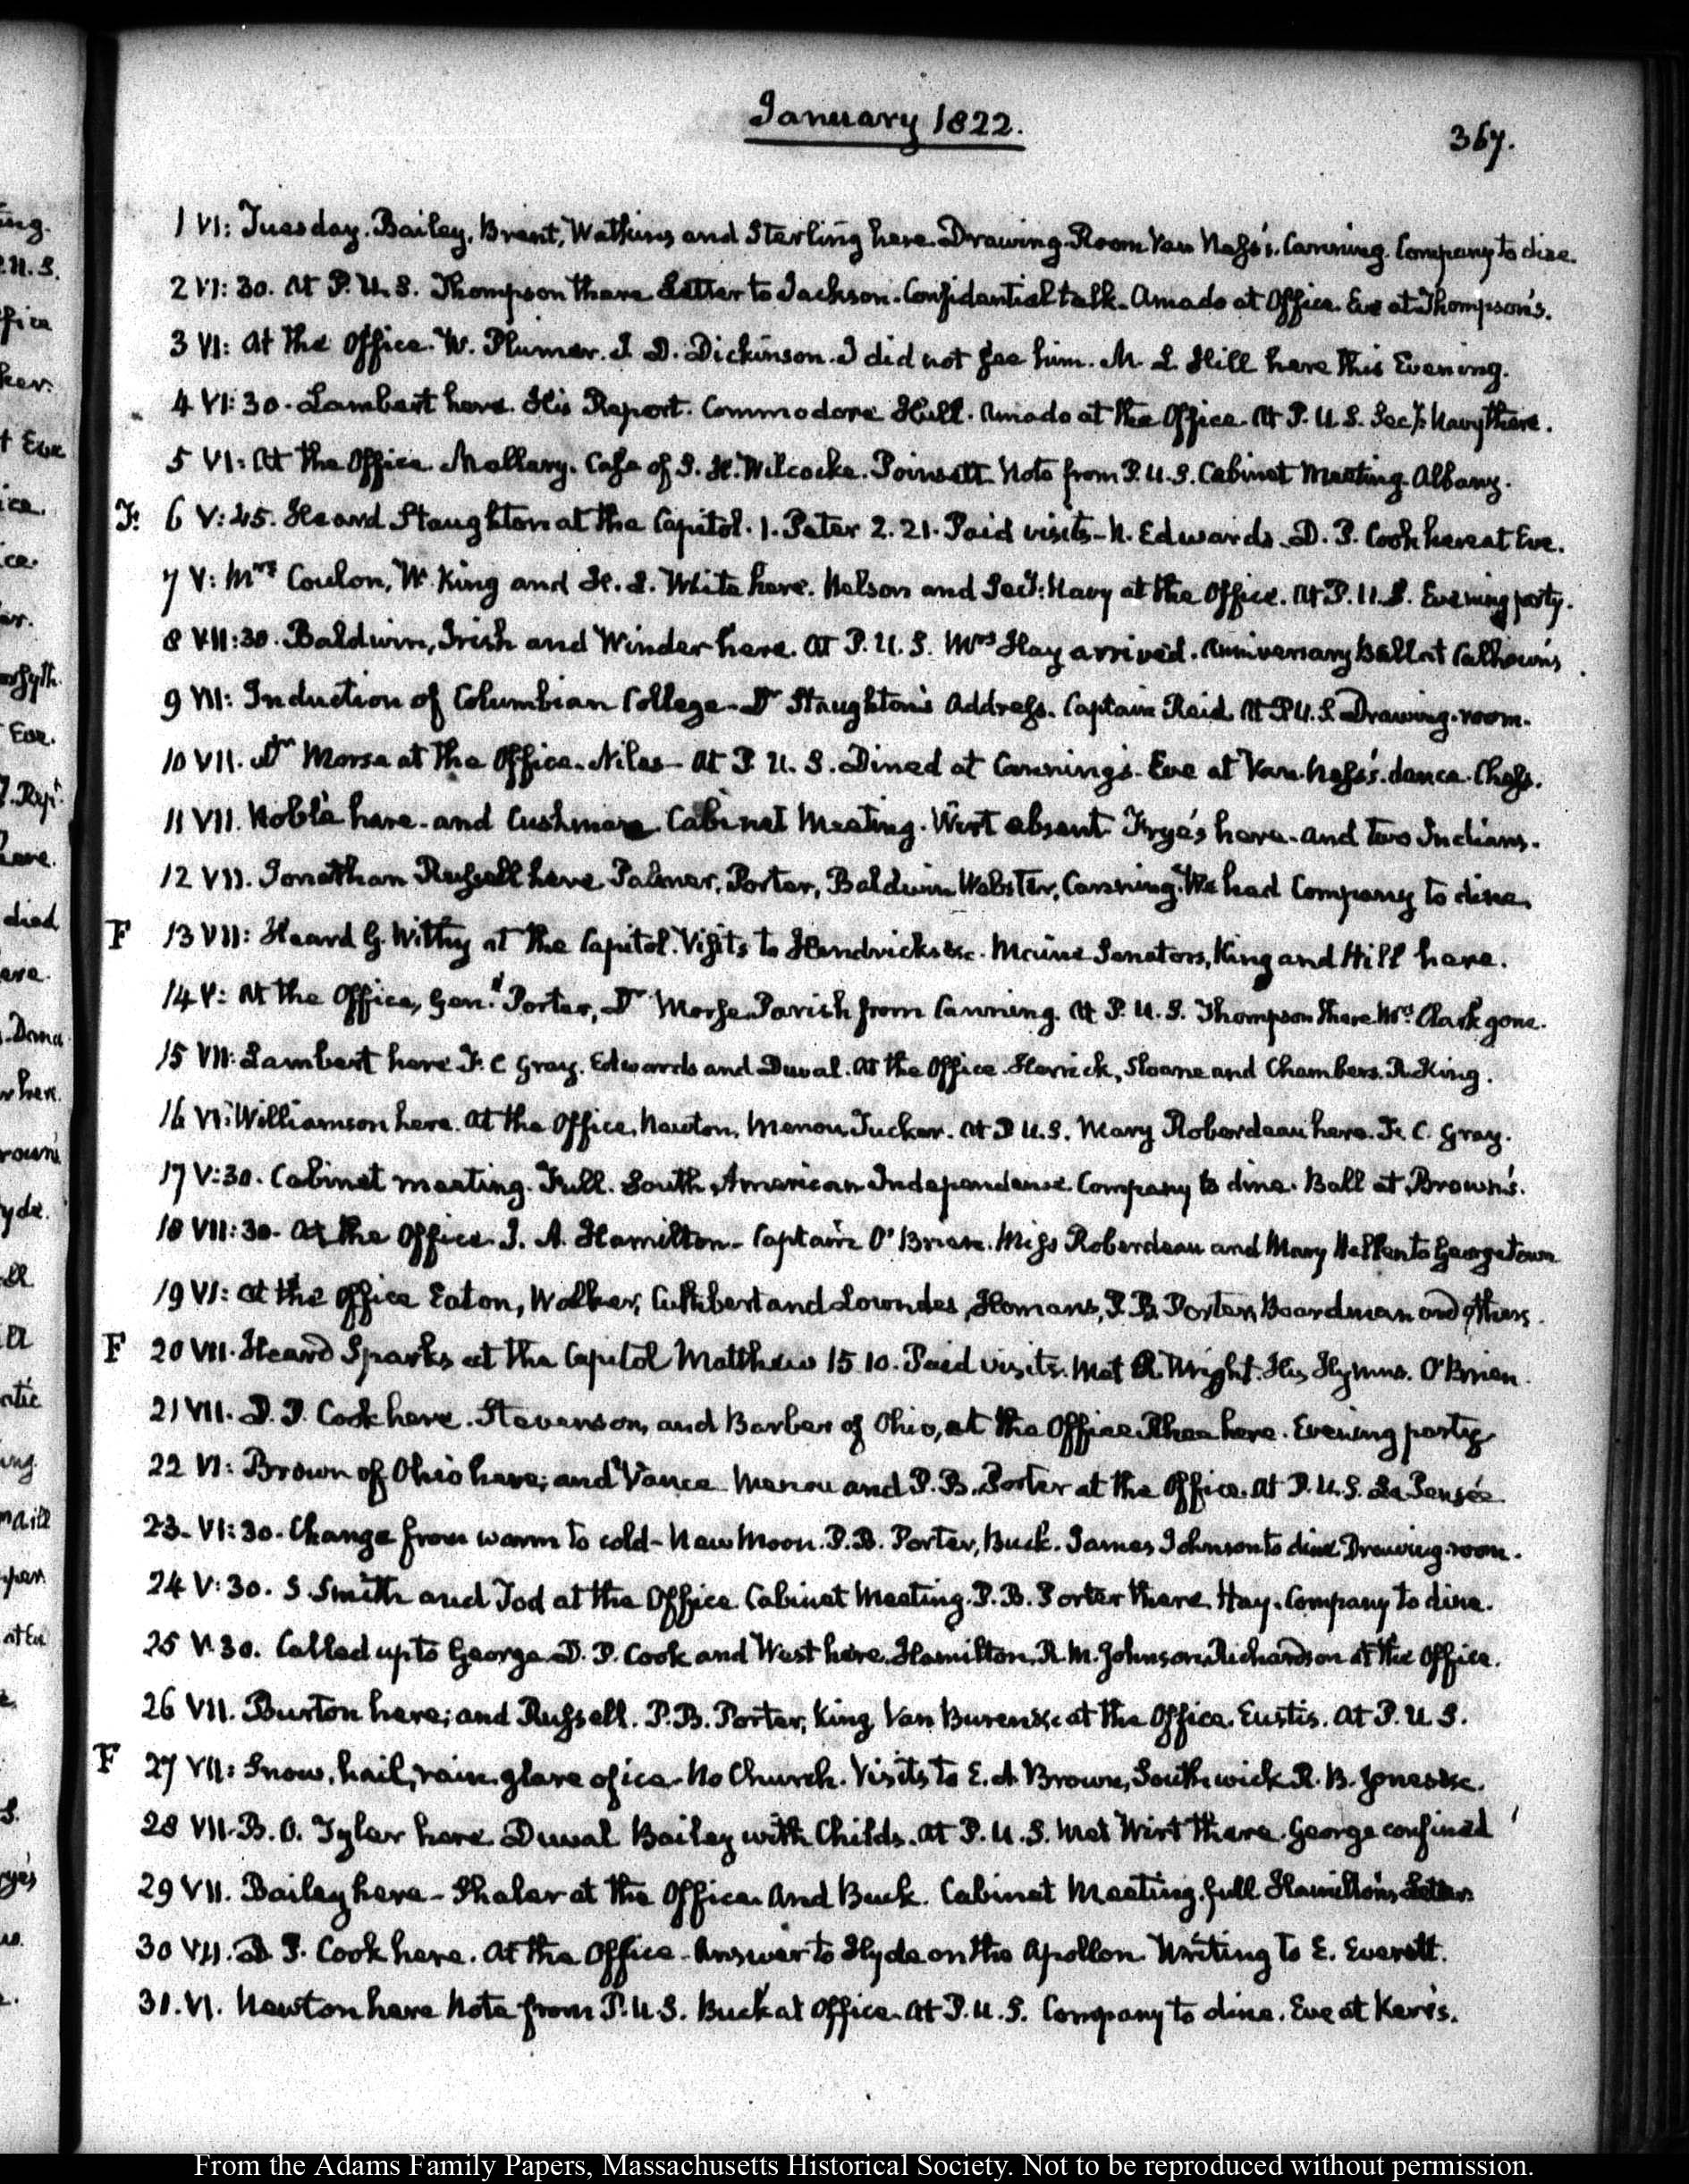 January 1822.
367.
1 VI: Tuesday. Bailey, Brent, Watkins and Sterling here. Drawing-Room Van Ness's. Canning. Company to dine.
2 VI: 30. At P. U. S. Thompson there Letter to Jackson. Confidential talk. Amado at Office. Eve at Thompson's.
3 VI: At the Office. W. Plumer. J. D. Dickinson. I did not see him. M. L. Hill here this Evening.
4 VI: 30. Lambert here. His Report. Commodore Hull. Amado at the Office. At P. U. S. Secy: Navy there.
5 VI: At the Office. Mallary. Case of S. H. Wilcocke. Poinsett. Note from P. U. S. Cabinet Meeting. Albany.
F: 6 V: 45. Heard Staughton at the Capitol. 1. Peter 2. 21. Paid visits- N. Edwards. D. P. Cook here at Eve.
7 V: Mrs Coulon, W. King and H. L. White here. Nelson and Secy: Navy at the Office. At P. U. S. Evening party.
8 VII: 30. Baldwin, Irish and Winder here. At P. U. S. Mrs Hay arrived. Anniversary Ball at Calhoun's
9 VII: Induction of Columbian College- Dr Staughton's Address. Captain Reid. At P. U. S. Drawing-room.
10 VII. Dr Morse at the Office. Niles- At P. U. S. Dined at Canning's. Eve at Van Ness's. dance. Chess.
11 VII. Noble here- and Cushman. Cabinet Meeting. Wirt absent. Frye's here. and two Indians.
12 VII. Jonathan Russell here. Palmer, Porter, Baldwin Webster, Canning. We had Company to dine.
F 13 VII: Heard G. Withy at the Capitol. Visits to Hendricks &c. Maine Senators, King and Hill here.
14 V: At the Office, Genl. Porter, Dr Morse Parish from Canning. At P. U. S. Thompson there Mrs. Clark gone.
15 VII: Lambert here F. C Gray. Edwards and Duval. At the Office. Herrick, Sloane and Chambers. R. King.
16 VI: Williamson here. At the Office, Newton, Menou Tucker. At P. U. S. Mary Roberdeau here. F. C. Gray.
17 V: 30. Cabinet meeting. Full. South American Independence. Company to dine. Ball at Brown's.
18 VII: 30. At the Office. J. A. Hamilton- Captain O'Brien. Miss Roberdeau and Mary Hellen to Georgetown
19 VI: At the Office Eaton, Walker, Cuthbert and Lowndes, Homans, P. B. Porter, Boardman and others.
F 20 VII. Heard Sparks at the Capitol Matthew 15. 10. Paid visits. Met R. Wright. His Hymns. O'Brien.
21 VII. D. P. Cook here. Stevenson, and Barber of Ohio, at the Office. Rhea here. Evening party
22 VI: Brown of Ohio here; and Vance. Menou and P. B. Porter at the Office. At P. U. S. La Pensée
23. VI: 30. Change from warm to cold- New Moon. P. B. Porter, Buck. James Johnson to dine Drawing-room.
24 V: 30. S Smith and Tod at the Office. Cabinet Meeting. P. B. Porter there. Hay. Company to dine.
25 V. 30. Called up to George. D. P. Cook and West here. Hamilton, R. M. Johnson, Richardson at the Office.
26 VII. Burton here; and Russell. P. B. Porter, King, Van Buren &c at the Office. Eustis. At P. U S.
F 27 VII: Snow, hail, rain. glare of ice. No Church. Visits to E. A. Brown, Southwick R. B. Jones &c.
28 VII. B. O. Tyler here. Duval Bailey with Childs. At P. U. S. Met Wirt there. George confined
29 VII. Bailey here- Shaler at the Office. And Buck. Cabinet Meeting. full Hamilton's Letter.
30 VII. D P. Cook here. At the Office- Answer to Hyde on the Apollon. Writing to E. Everett.
31. VI. Newton here Note from P. U S. Buck at Office. At P. U. S. Company to dine. Eve at Kerr's.
From the Adams Family Papers, Massachusetts Historical Society. Not to be reproduced without permission.